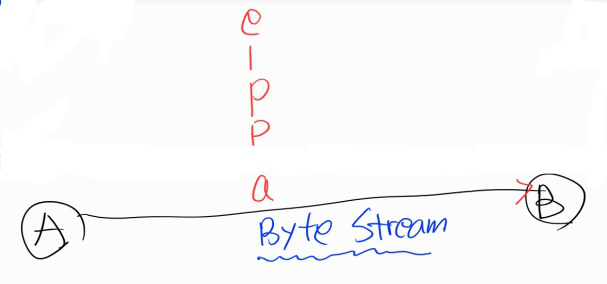 e
l
p
p
a
A
B
Byte Stream